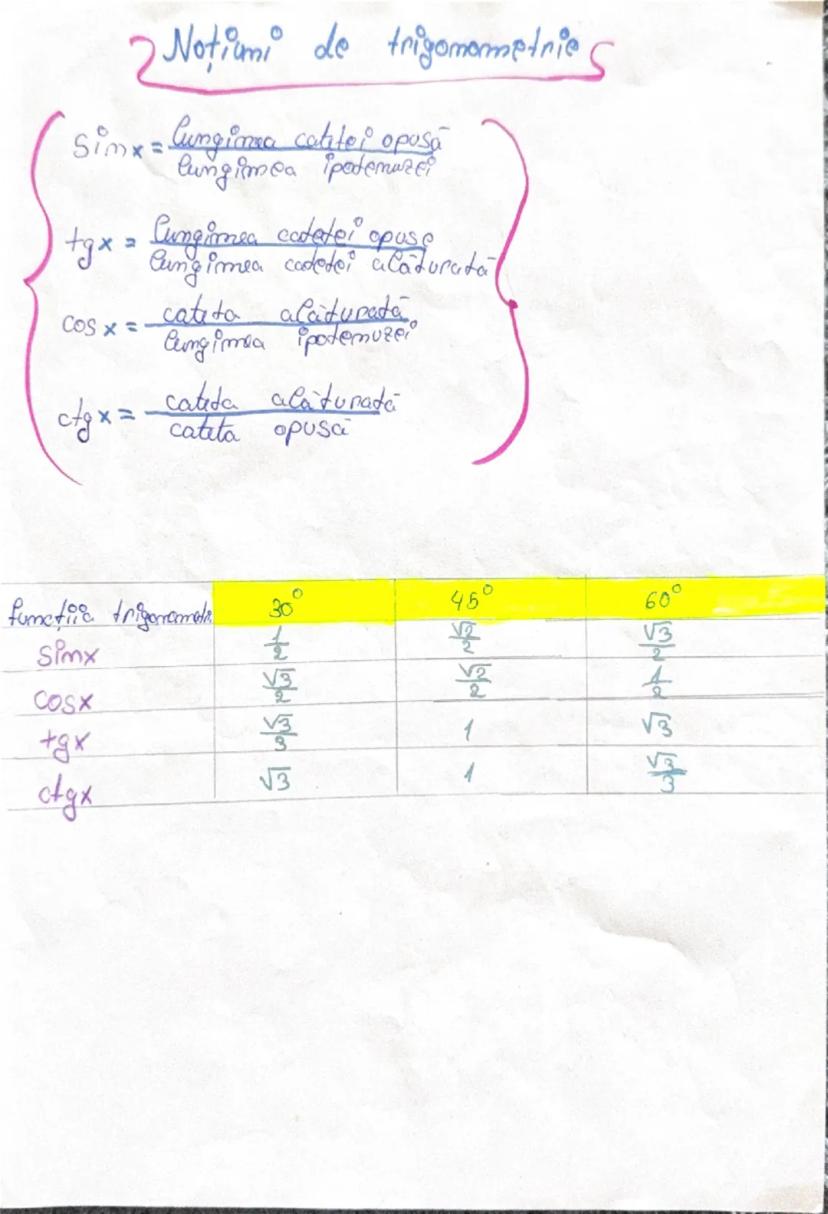 Noțiuni de trigonometrie
sin x = lungimea catetei opusă / lungimea ipotenuzei
tg x = lungimea catetei opuse / lungimea catetei alăturată
cos x = cateta alăturată / lungimea ipotenuzei
ctg x = cateta alăturată / cateta opusă
funcția trigonometr. 30° 45° 60°
sin x 1/2 √2/2 √3/2
cos x √3/2 √2/2 1/2
tg x √3/3 1 √3
ctg x √3 1 √3/3